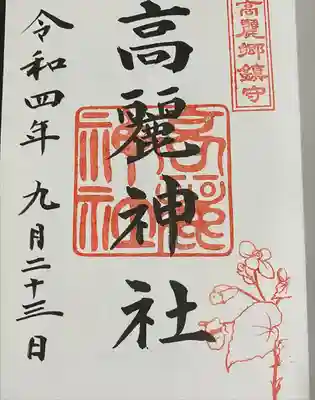 高麗郷鎮守
高麗神社
高麗神社
令和四年九月二十三日